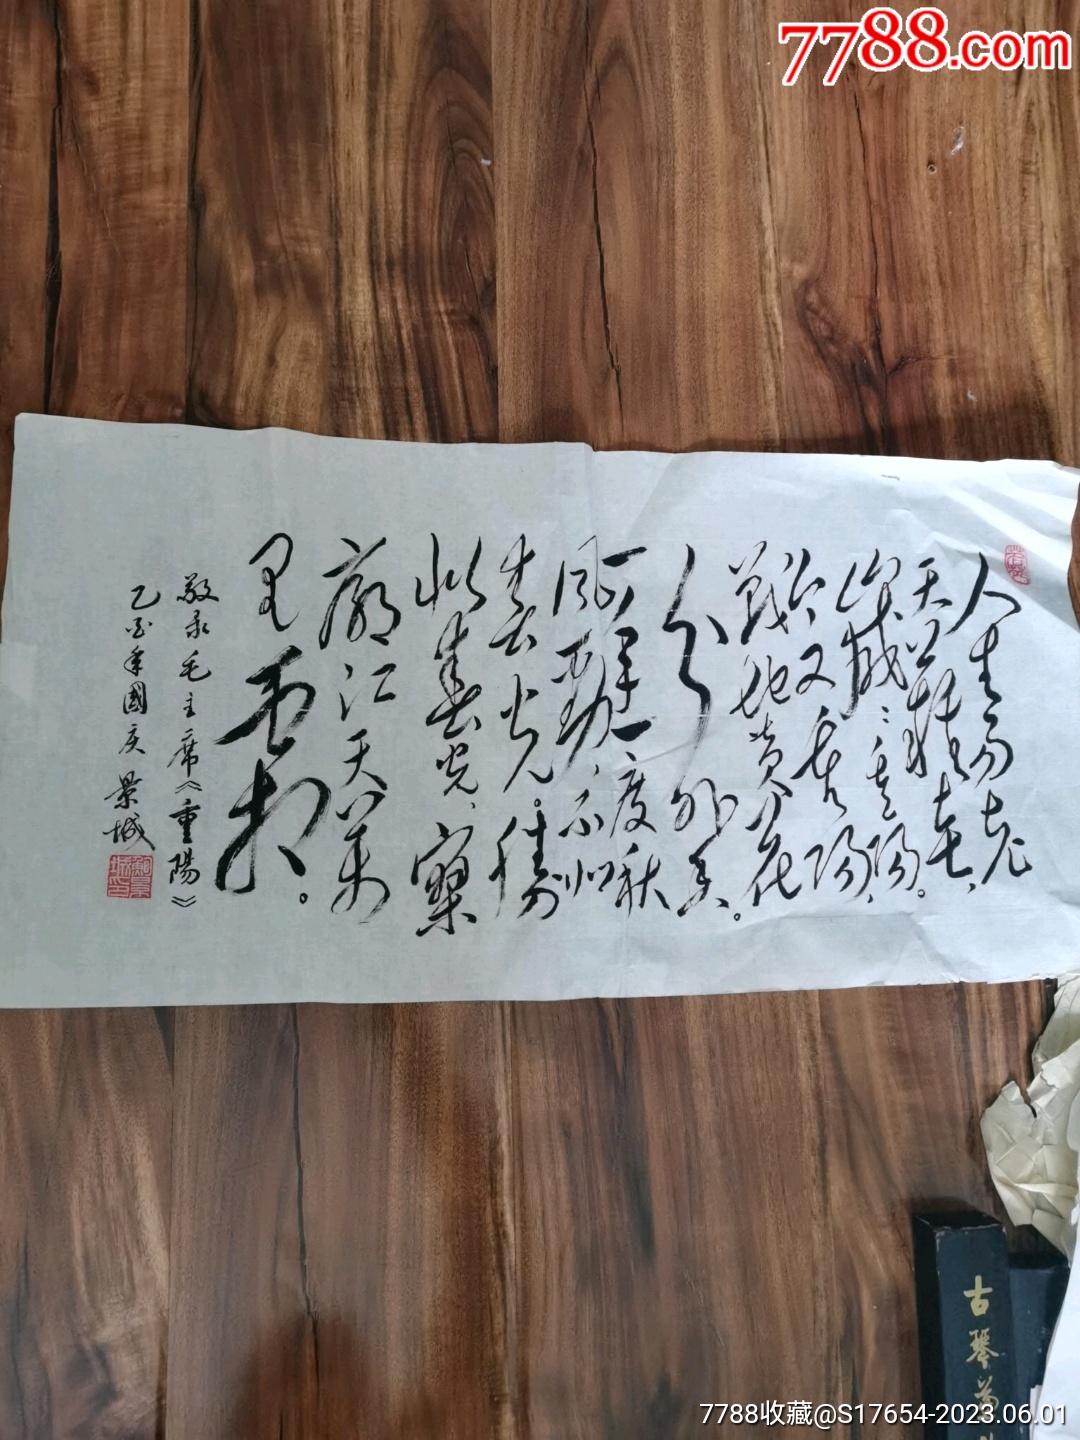 7788.com
人生易老
天难老、
歲〻重陽。
今又重陽、
戰地黄花
分外香。
一年一度秋
風勁、不似
春光。勝
似春光、寥
廓江天万
里霜。
敬录毛主席《重陽》
乙酉年國庆 景城
古琴
7788收藏@S17654-2023.06.01